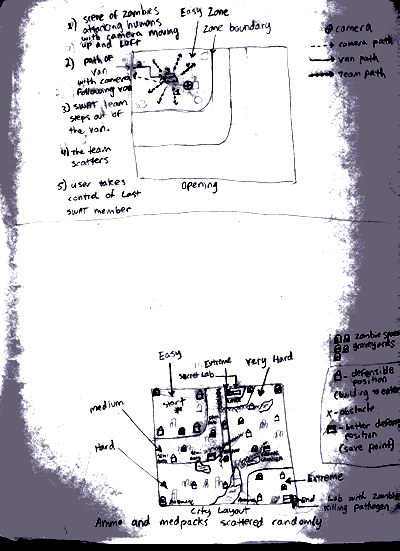 1) scene of zombies
attacking humans
with camera moving
up and left
Easy Zone
Zone boundary
camera
camera path
van path
team path
2) path of
van
with camera
following van
3) SWAT team
steps out of
the van.
4) the team
scatters
5) user takes
control of last
SWAT member
Opening
Easy
Extreme
Very Hard
secret Lab
medium
start
Hard
Extreme
End
City Layout
Ammo and medpacks scattered randomly
zombie
graveyards
- defensible
position
(building to enter
X - obstacle
- better
position
(save point)
Lab with zombie
killing pathogen